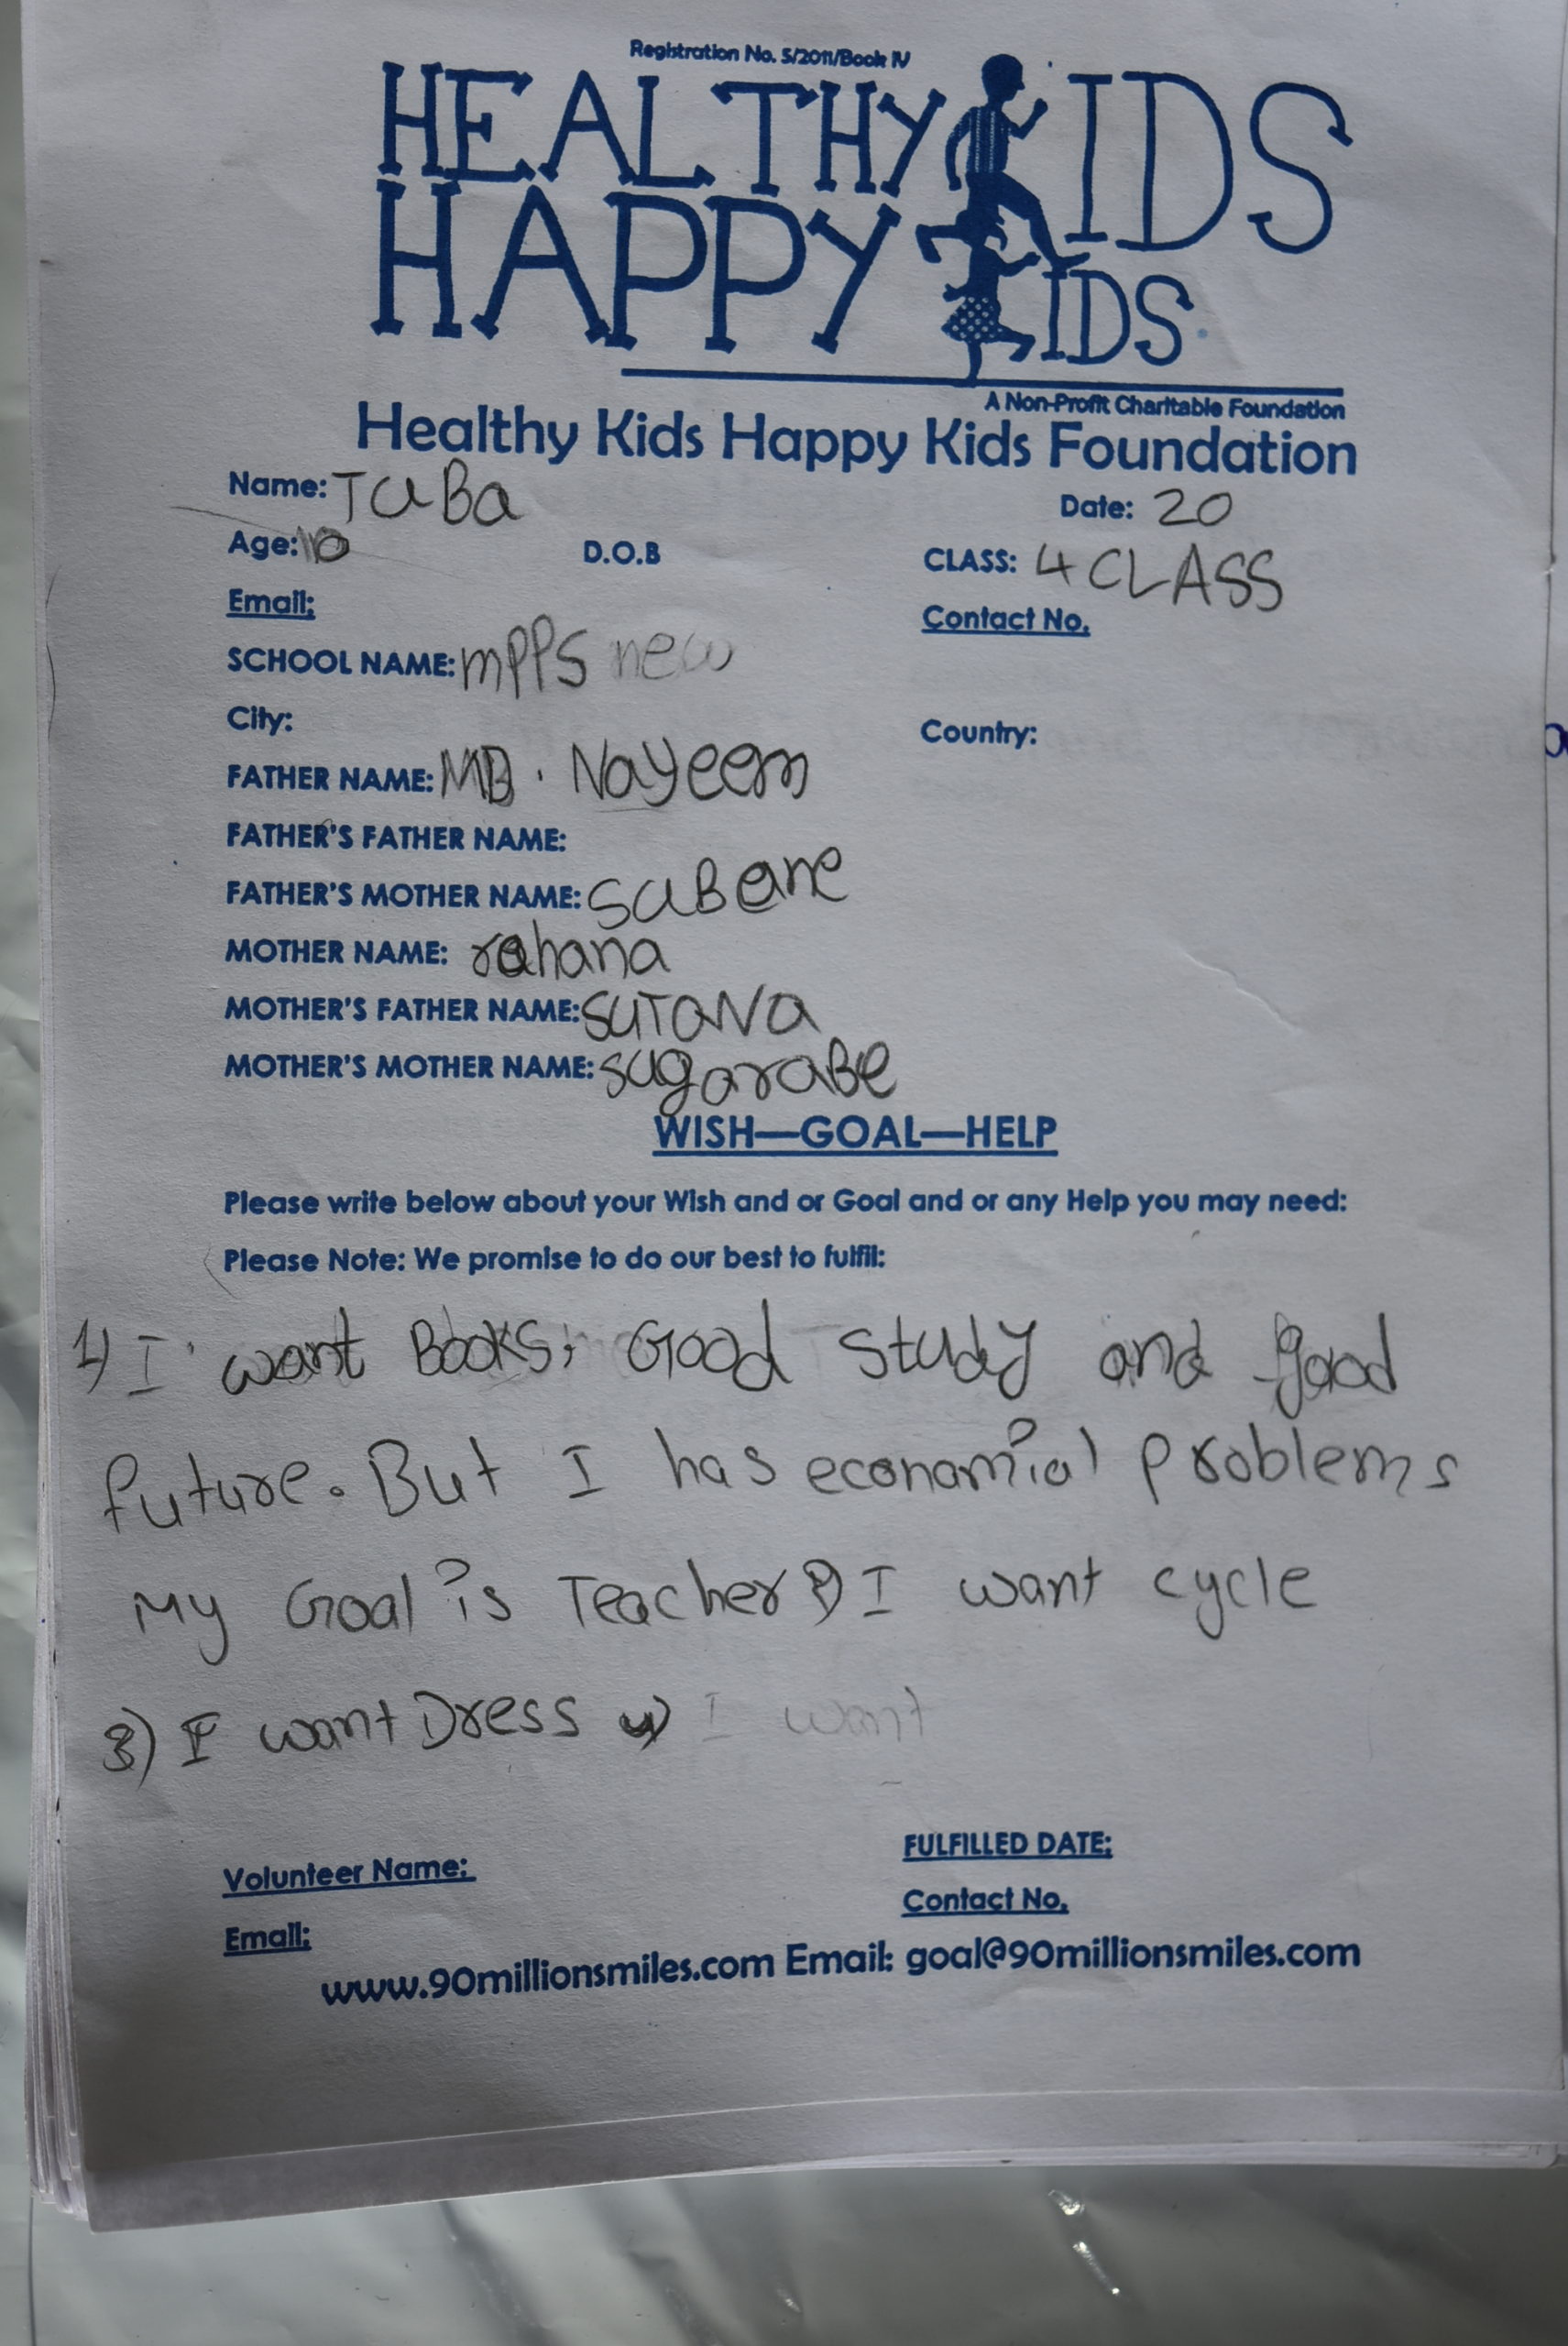 Registration No. 5/2011/Book IV
HEALTHY KIDS
HAPPY KIDS
A Non-Profit Charitable Foundation
Healthy Kids Happy Kids Foundation
Name: TUBa
Date: 20
Age: 10 D.O.B CLASS: 4 CLASS
Email: Contact No.
SCHOOL NAME: mPPS new
City: Country:
FATHER NAME: MD. Nayeem
FATHER'S FATHER NAME:
FATHER'S MOTHER NAME: SUBene
MOTHER NAME: rahana
MOTHER'S FATHER NAME: SUTANa
MOTHER'S MOTHER NAME: sugaraBe
WISH—GOAL—HELP
Please write below about your Wish and or Goal and or any Help you may need:
Please Note: We promise to do our best to fulfil:
1) I want Books, Good Study and good
future. But I has economial problems
My Goal is Teacher 2) I want cycle
3) I want Dress 4) I want
FULFILLED DATE:
Volunteer Name:
Contact No.
Email:
www.90millionsmiles.com Email: goal@90millionsmiles.com